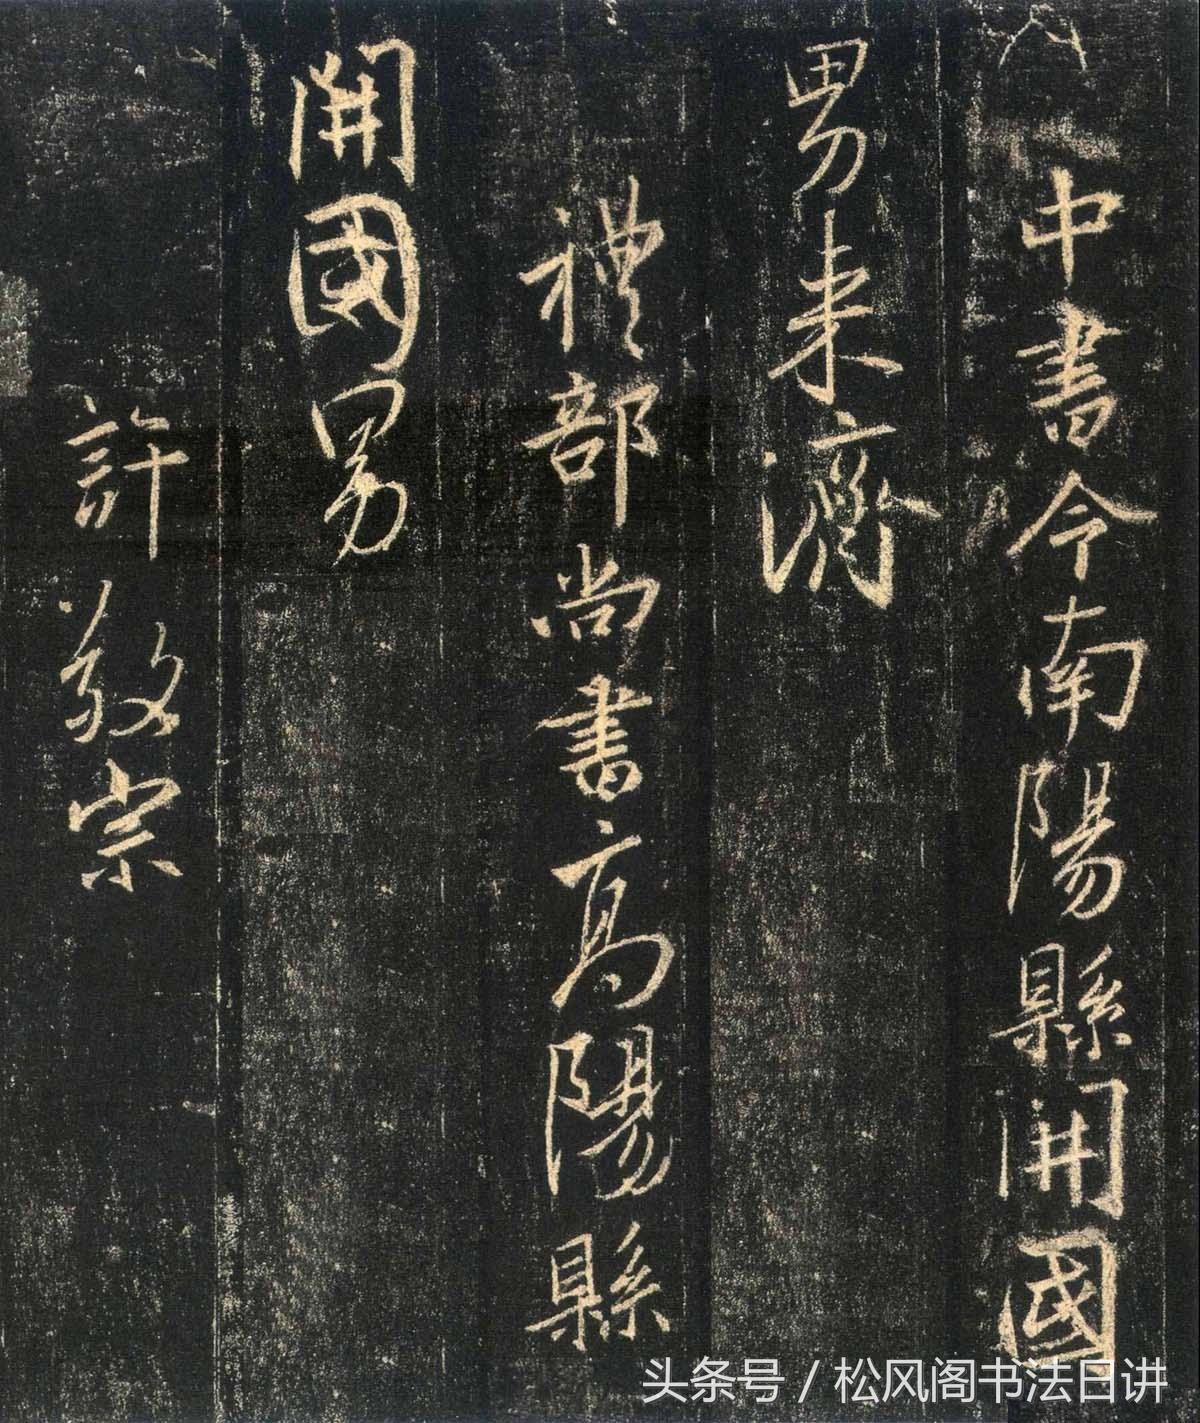 中書令南陽縣開國
男来濟
禮部尚書高陽縣
開國男
許敬宗
头条号 / 松风阁书法日讲